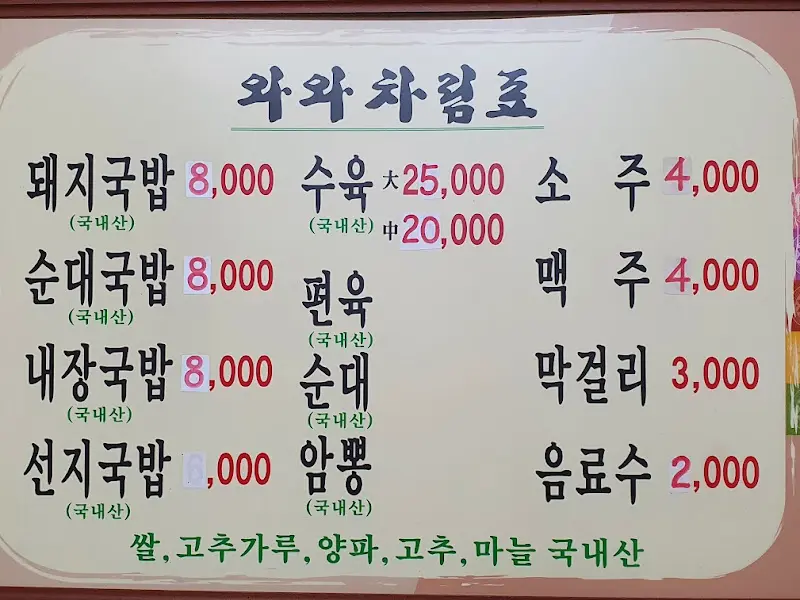 와와 차림표
돼지국밥 8,000
(국내산)
순대국밥 8,000
(국내산)
내장국밥 8,000
(국내산)
선지국밥 ,000
(국내산)
수육 大 25,000
(국내산) 中 20,000
편육
(국내산)
순대
(국내산)
암뽕
(국내산)
소 주 4,000
맥 주 4,000
막걸리 3,000
음료수 2,000
쌀, 고추가루, 양파, 고추, 마늘 국내산